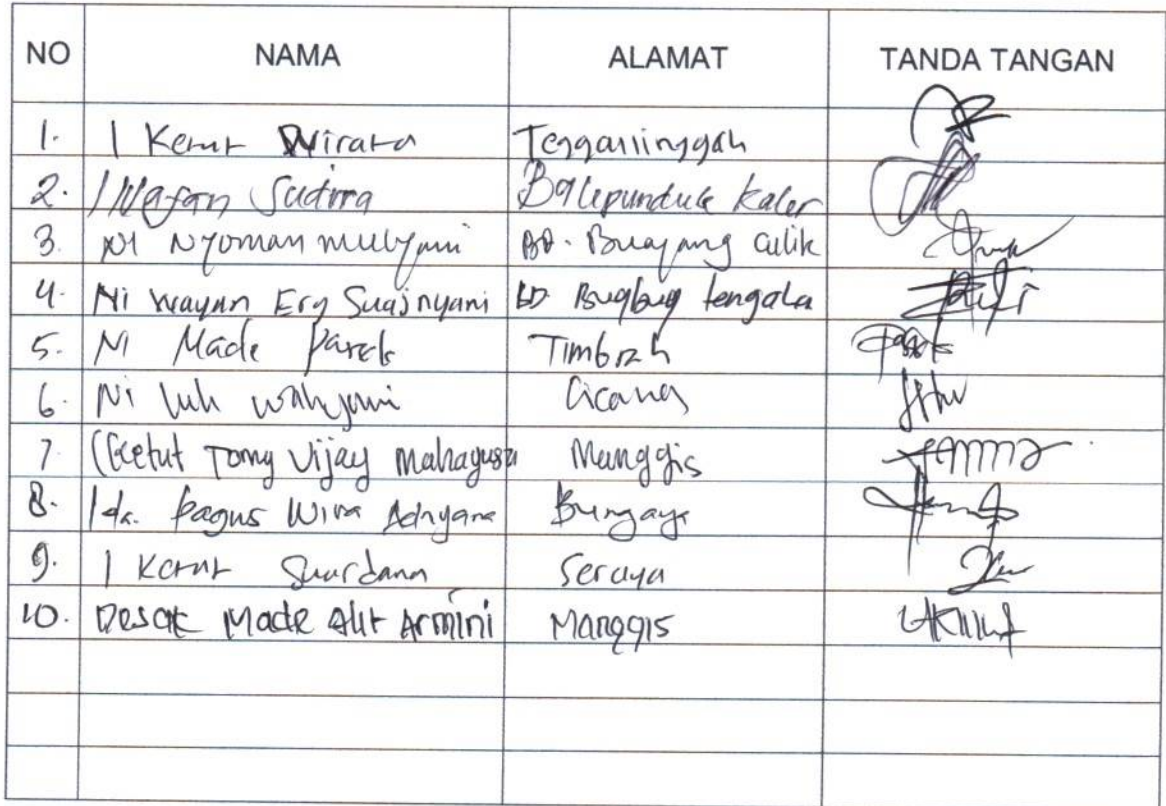 NO NAMA ALAMAT TANDA TANGAN
1. I Ketut Wirata Tenganinggah
2. I Wayan Sudira Balepunduk Kaler
3. Ni Nyoman Mulyani BD. Buayang Culik
4. Ni Wayan Ery Suajnyani BD. Bugbug tengala
5. Ni Made Parek Timbrah
6. Ni Luh Wahyuni
7. I Ketut Tomy Vijay Mahayusa Manggis
8. Ida. Bagus Wira Adnyana Bungaya
9. I Ketut Suardana Seraya
10. Desak Made Alit Armini Manggis